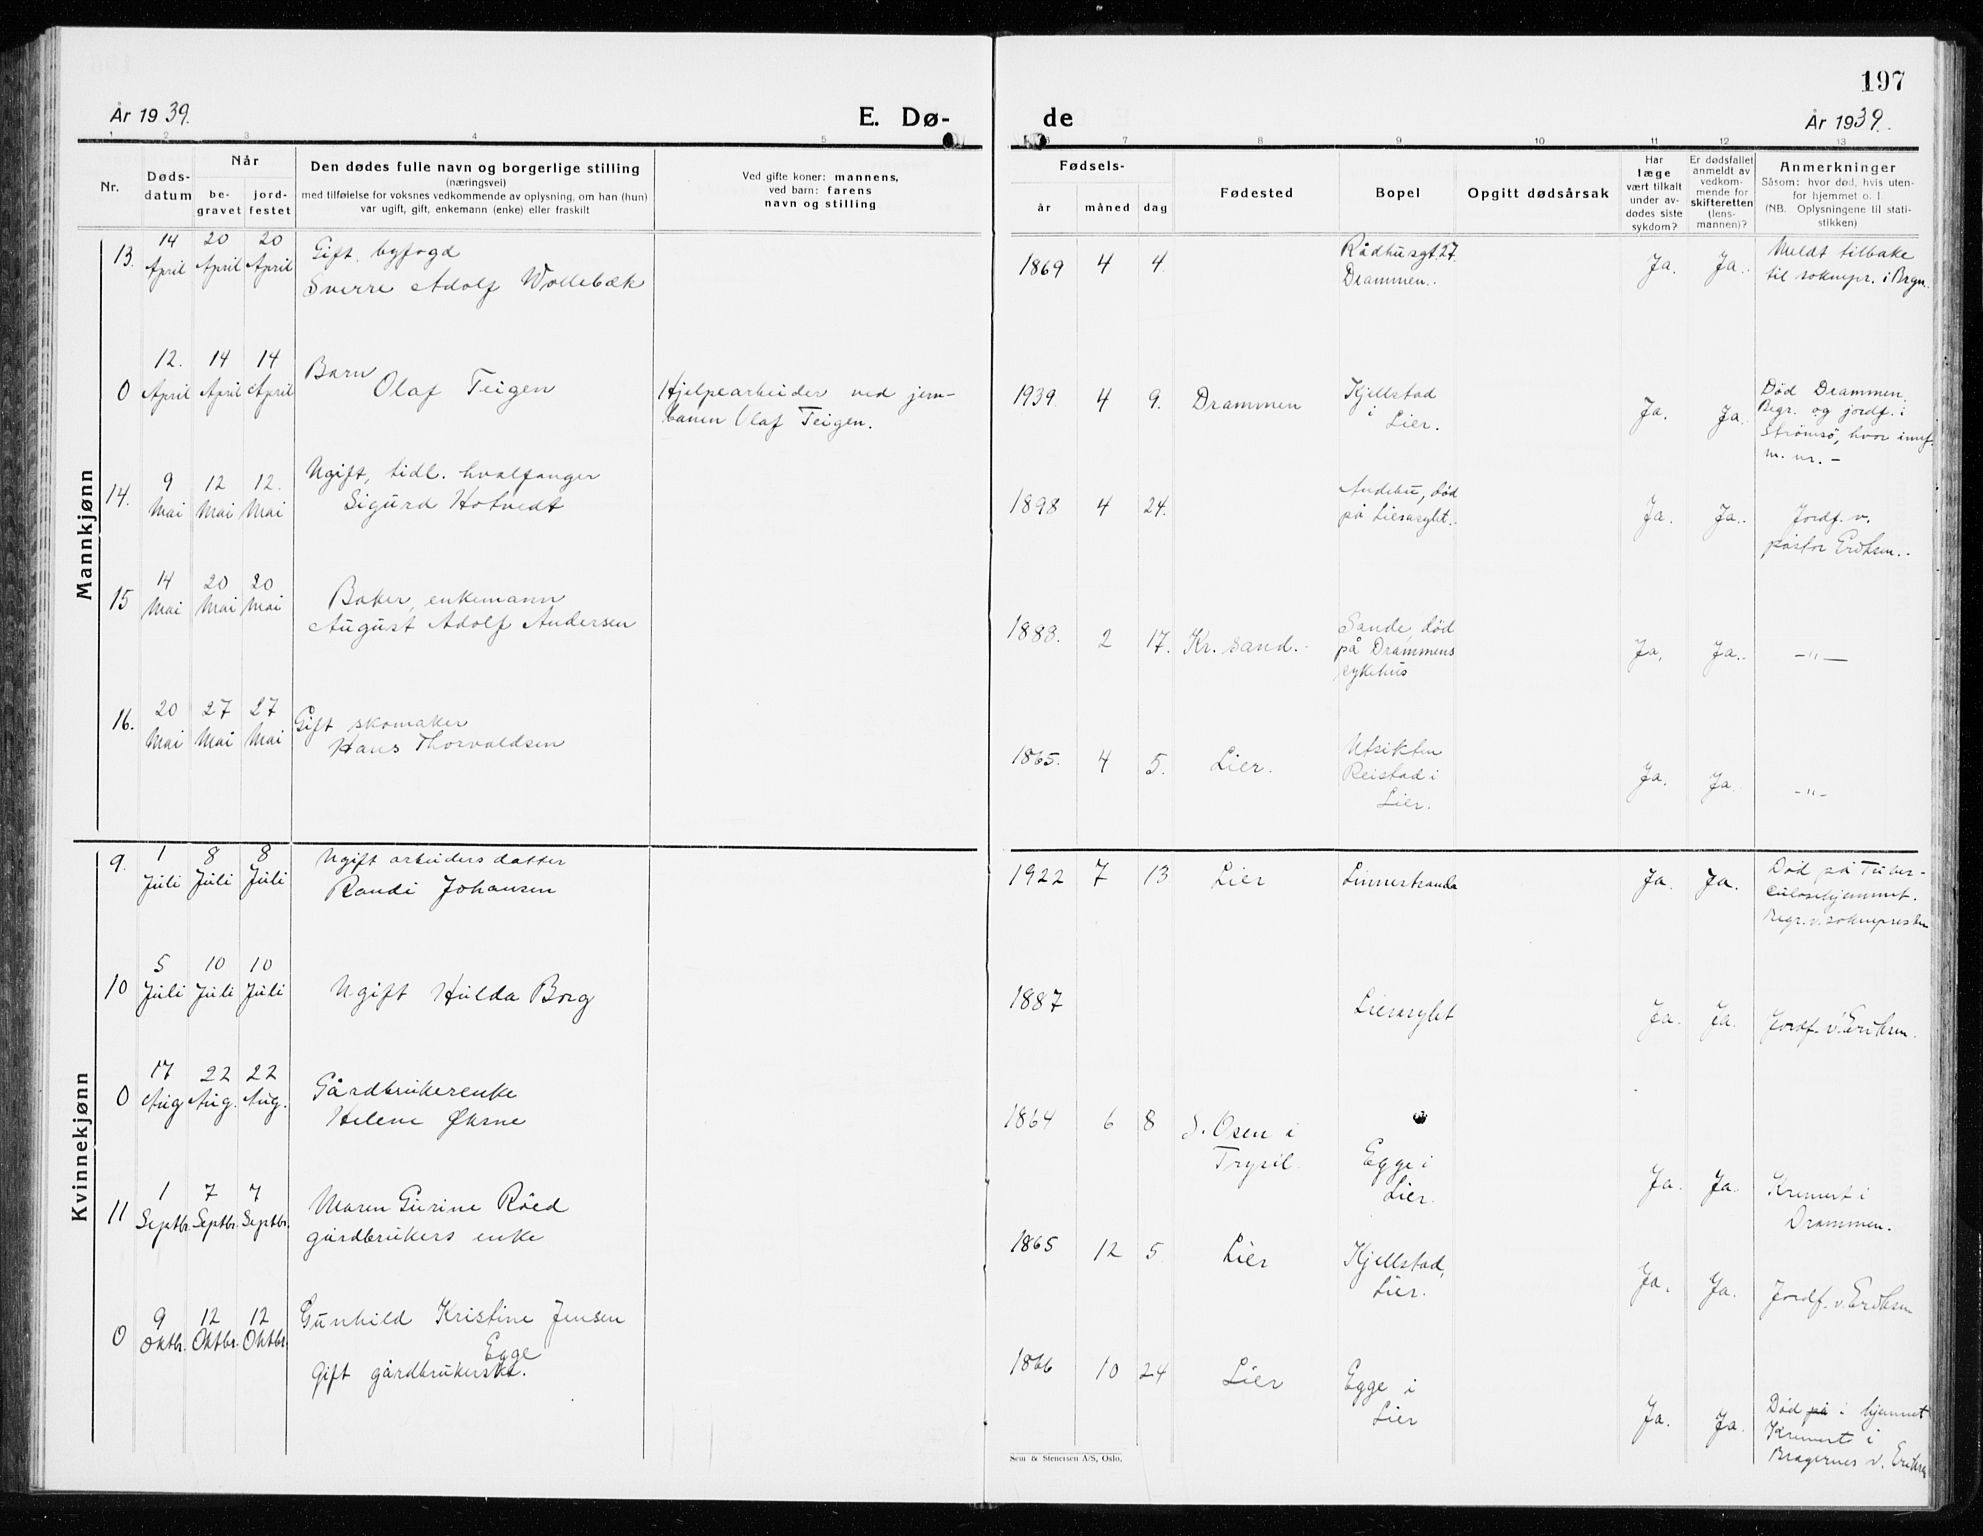 197
År 1939.
E. Dø-
de
År 1939.
1 2 3 4 5 6 7 8 9 10 11 12 13
Nr.
Døds-
datum
Når
be-
gravet
jord-
festet
Den dødes fulle navn og borgerlige stilling
(næringsvei)
med tilføielse for voksnes vedkommende av oplysning, om han (hun)
var ugift, gift, enkemann (enke) eller fraskilt
Ved gifte koner: mannens,
ved barn: farens
navn og stilling
Fødsels-
år måned dag
Fødested
Bopel
Opgitt dødsårsak
Har
læge
vært tilkalt
under av-
dødes siste
sykdom?
Er dødsfallet
anmeldt av
vedkom-
mende for
skifteretten
(lens-
mannen)?
Anmerkninger
Såsom: hvor død, hvis uten-
for hjemmet o. l.
(NB. Oplysningene til stati-
stikken)
Mannkjønn
13. 14 April 20 April 20 April
Gift byfogd
Sverre Adolf Wollebæk
1869 4 4.
Rådhusgt. 27.
Drammen.
Ja. Ja.
Meldt tilbake
til soknepr. i Brgn.
0 12. April 14 April 14 April
Barn
Olaf Teigen
Hjelpearbeider ved jern-
banen Olaf Teigen.
1939. 4 9. Drammen
Kjellstad
i
Lier.
Ja. Ja.
Død Drammen.
Begr. og jordf. i
Strømsø, hvor innf.
m. nr. -
14. 9 Mai 12 Mai 12. Mai
Ugift, tidl. hvalfanger
Sigurd Hotvedt
1898 4 24.
Andebu, død
på Lierasylet.
Ja. Ja.
Jordf. v.
pastor Eriksen.
15 14 Mai 20 Mai 20 Mai
Baker, enkemann
August Adolf Andersen
1883. 2 17. Kr. sand.
Sande, død
på Drammens
sykehus
Ja. Ja.
-"-
16. 20 Mai 27 Mai 27 Mai
Gift skomaker
Hans Thorvaldsen
1865. 4 5. Lier.
Utsikten
Reistad i
Lier.
Ja. Ja.
-"-
Kvinnekjønn
9. 1 Juli 8 Juli 8 Juli
Ugift arbeidersdatter
Randi Johansen
1922 7 13 Lier Linnestranda
Ja. Ja.
Død på Tuber-
culosehjemmet.
Begr. v. soknepresten
10 5 Juli 10 Juli 10 Juli
Ugift Hulda Borg
1887
Lierasylet
Ja. Ja.
Jordf. v. Eriksen.
0 17 Aug 22 Aug. 22 Aug.
Gårdbrukerenke
Helene Økrne
1864 6 8
S. Osen i
Trysil.
Egge i
Lier.
Ja. Ja.
Kremert i
Drammen.
11 1 Septbr. 7 Septbr. 7 Septbr.
Maren Gurine Röed
gårdbrukers enke
1865 12 5. Lier
Kjellstad,
Lier.
Ja. Ja.
Jordf. v. Eriksen
0 9 Oktbr. 12 Oktbr. 12 Oktbr.
Gunhild Kristine Jensen
Egge
Gift gårdbrukerske.
1866 10 24 Lier
Egge i
Lier
Ja. Ja.
Død på i hjemmet
Kremert i
Bragernes v. Eriksen
Sem & Stenersen A/S, Oslo.